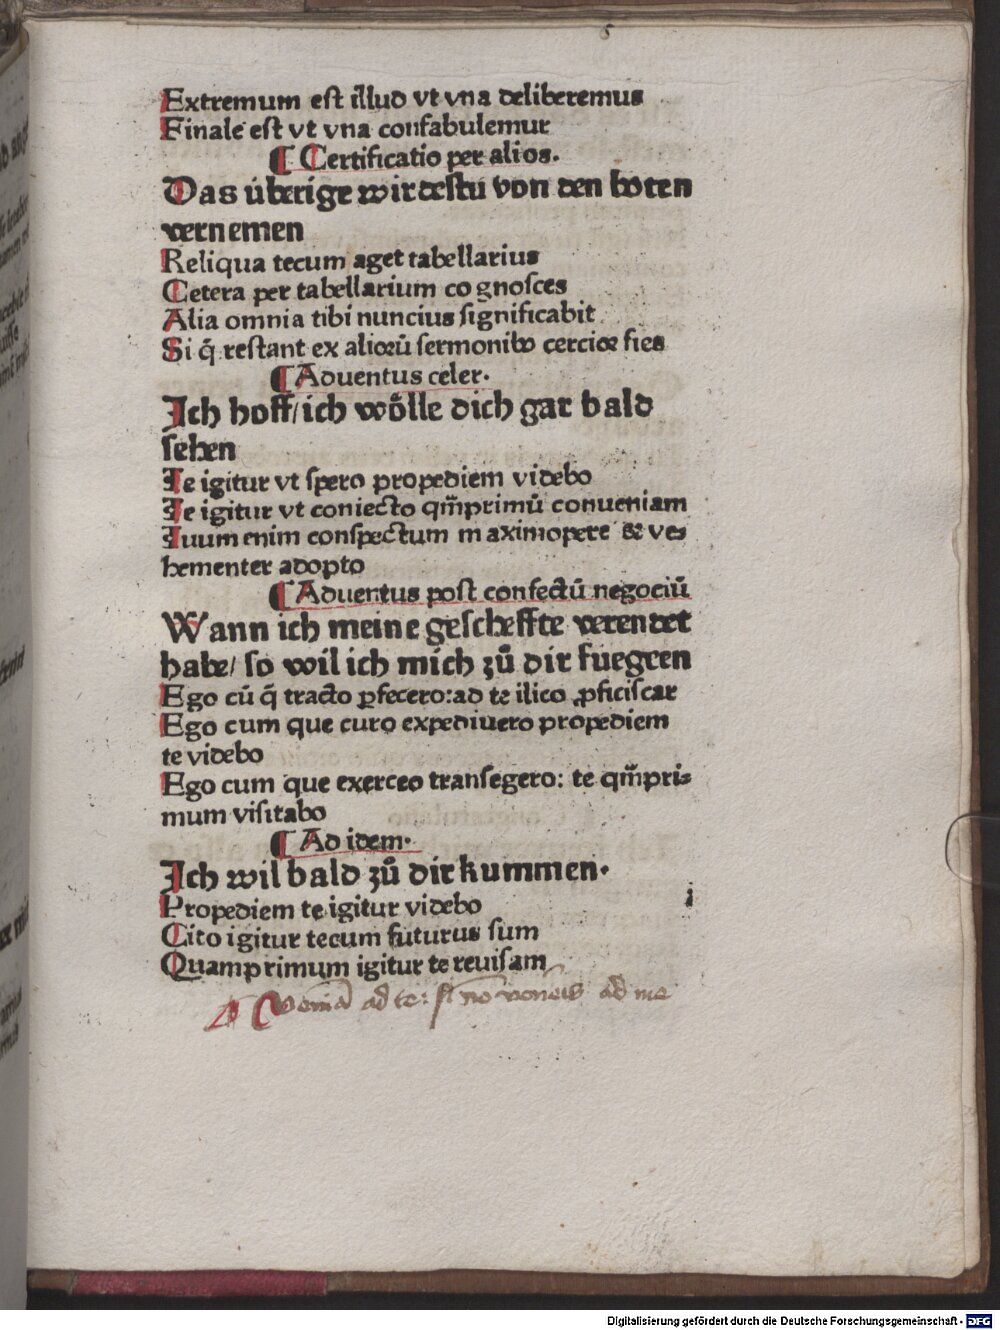 Extremum est illud vt vna deliberemus
Finale est vt vna confabulemur
¶ Certificatio per alios.
Das überige wirdestu von den boten
vernemen
Reliqua tecum aget tabellarius
Cetera per tabellarium co gnosces
Alia omnia tibi nuncius significabit
Si q̄ restant ex alioꝝ sermonibꝰ cercior fies
¶ Aduentus celer.
Ich hoff/ ich wölle dich gar bald
sehen
Te igitur vt spero propediem videbo
Te igitur vt coniecto qm̄primū conueniam
Tuum enim conspectum maximopere & ve⸗
hementer adopto
¶ Aduentus post confectū negociū
Wann ich meine gescheffte verendet
habe/ so wil ich mich zů dir fuegeen
Ego cū q̄ tracto ꝑfecero: ad te ilico ꝓficiscar
Ego cum que curo expediuero propediem
te videbo
Ego cum que exerceo transegero: te qm̄pri⸗
mum visitabo
¶ Ad idem.
Ich wil bald zů dir kummen.
Propediem te igitur videbo
Cito igitur tecum futurus sum
Quamprimum igitur te reuisam
Veniā ad te: si nō veneris ad me
Digitalisierung gefördert durch die Deutsche Forschungsgemeinschaft - DFG